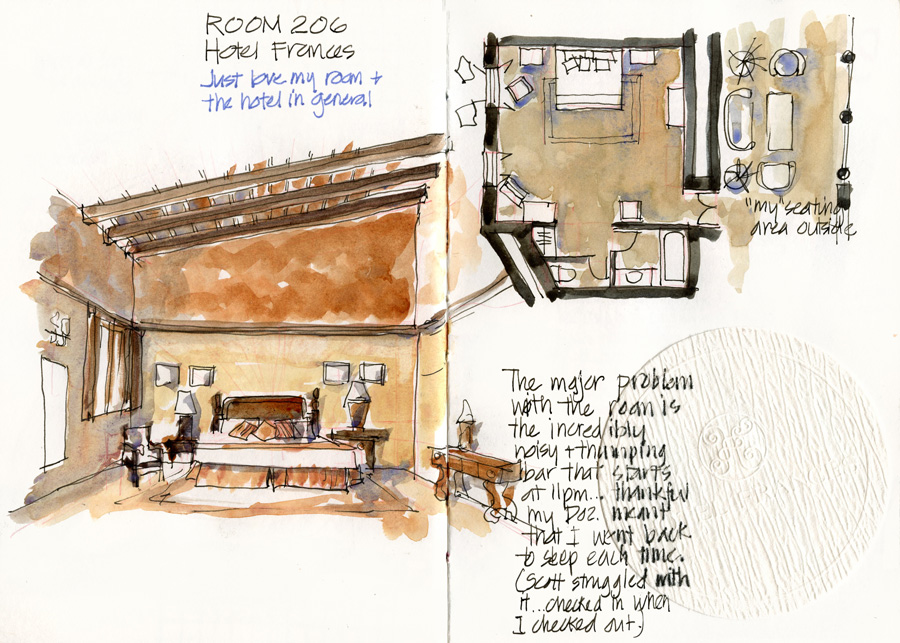 ROOM 206
Hotel Frances
Just love my room +
the hotel in general
"my" seating
area outside
The major problem
with the room is
the incredibly
noisy + thumping
bar that starts
at 11pm... thankful
my Doz. meant
that I went back
to sleep each time.
(Scott struggled with
it...checked in when
I checked out.)